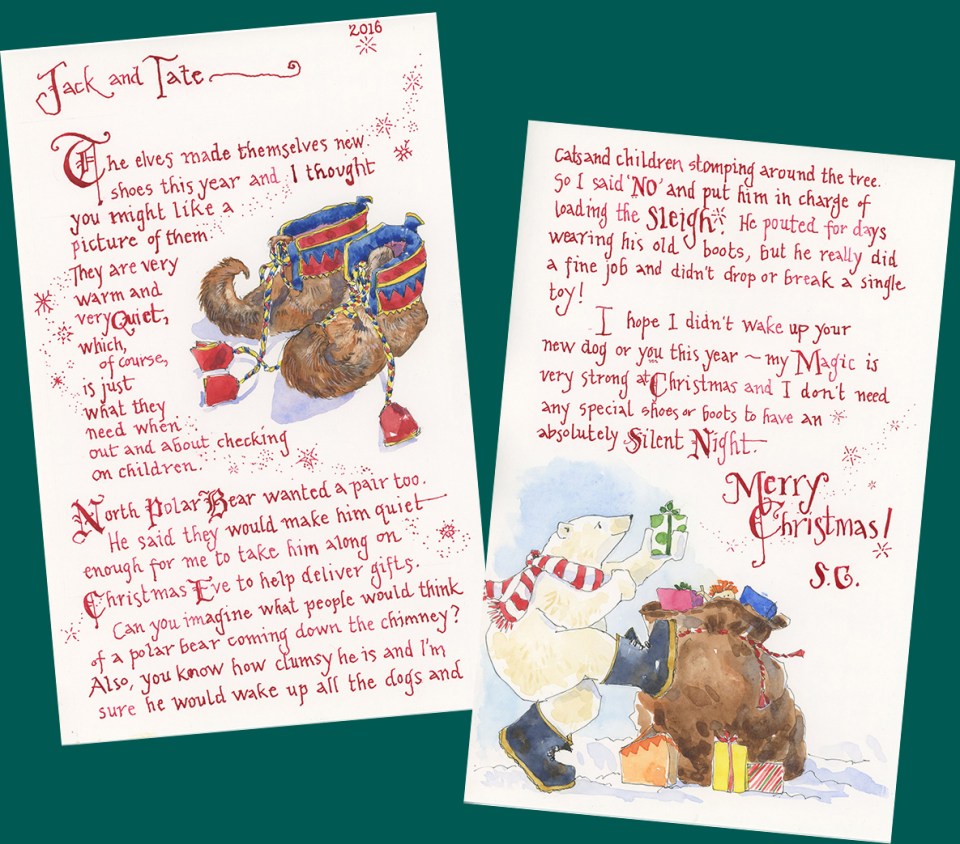 2016
Jack and Tate
The elves made themselves new
shoes this year and I thought
you might like a
picture of them.
They are very
warm and
very Quiet,
which,
of course,
is just
what they
need when
out and about checking
on children.
North Polar Bear wanted a pair too.
He said they would make him quiet
enough for me to take him along on
Christmas Eve to help deliver gifts.
Can you imagine what people would think
of a polar bear coming down the chimney?
Also, you know how clumsy he is and I'm
sure he would wake up all the dogs and
Cats and children stomping around the tree.
So I said 'NO' and put him in charge of
loading the Sleigh. He pouted for days
wearing his old boots, but he really did
a fine job and didn't drop or break a single
toy!
I hope I didn't wake up your
new dog or you this year ~ my Magic is
very strong at Christmas and I don't need
any special shoes or boots to have an
absolutely Silent Night.
Merry
Christmas!
S.C.